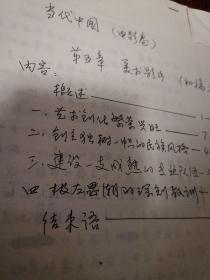 当代中国（电影卷）
内容：第五章 美术影片（初稿
概述——1
一、艺术创作繁荣兴旺——7
二、创立独树一帜的民族风格——
三、建设一支成熟的专业队伍——
四、极左思潮的深刻教训——
结束语——